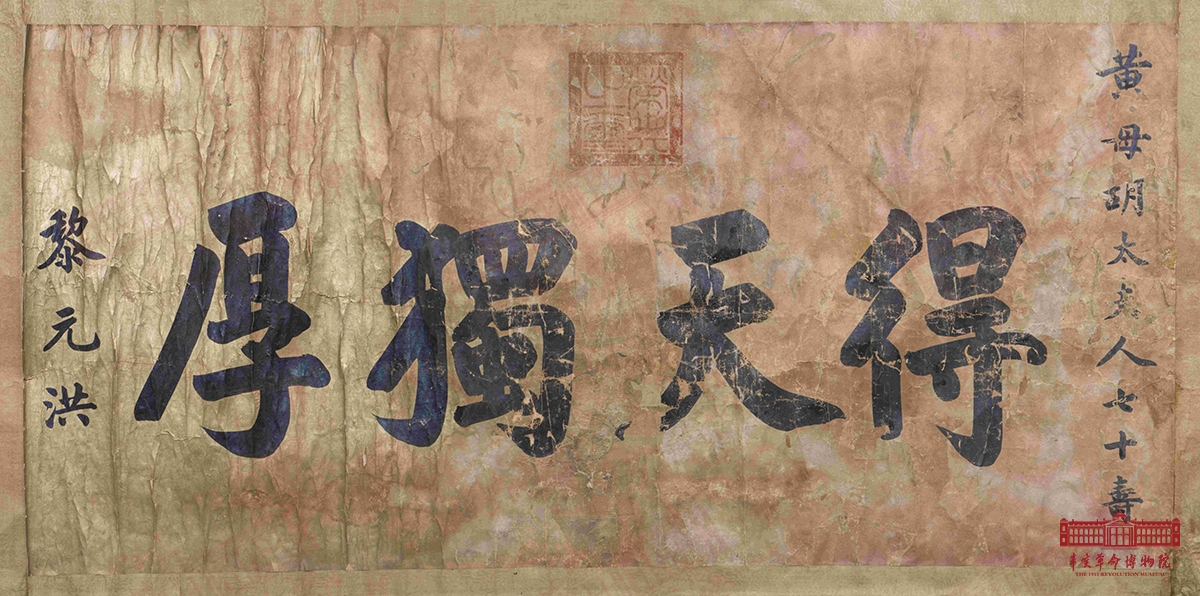 黃母胡太夫人七十壽
榮典之璽
得天獨厚
黎元洪
辛亥革命博物院
THE 1911 REVOLUTION MUSEUM